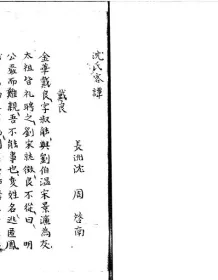 沈氏客譚
長洲沈 周 啓南
戴良
金華戴良字叔能與劉伯溫宋景濂爲友
太祖皆礼聘之劉宋就徵良不從曰明
公暴而離親吾不能事也変姓名逃匿鳳